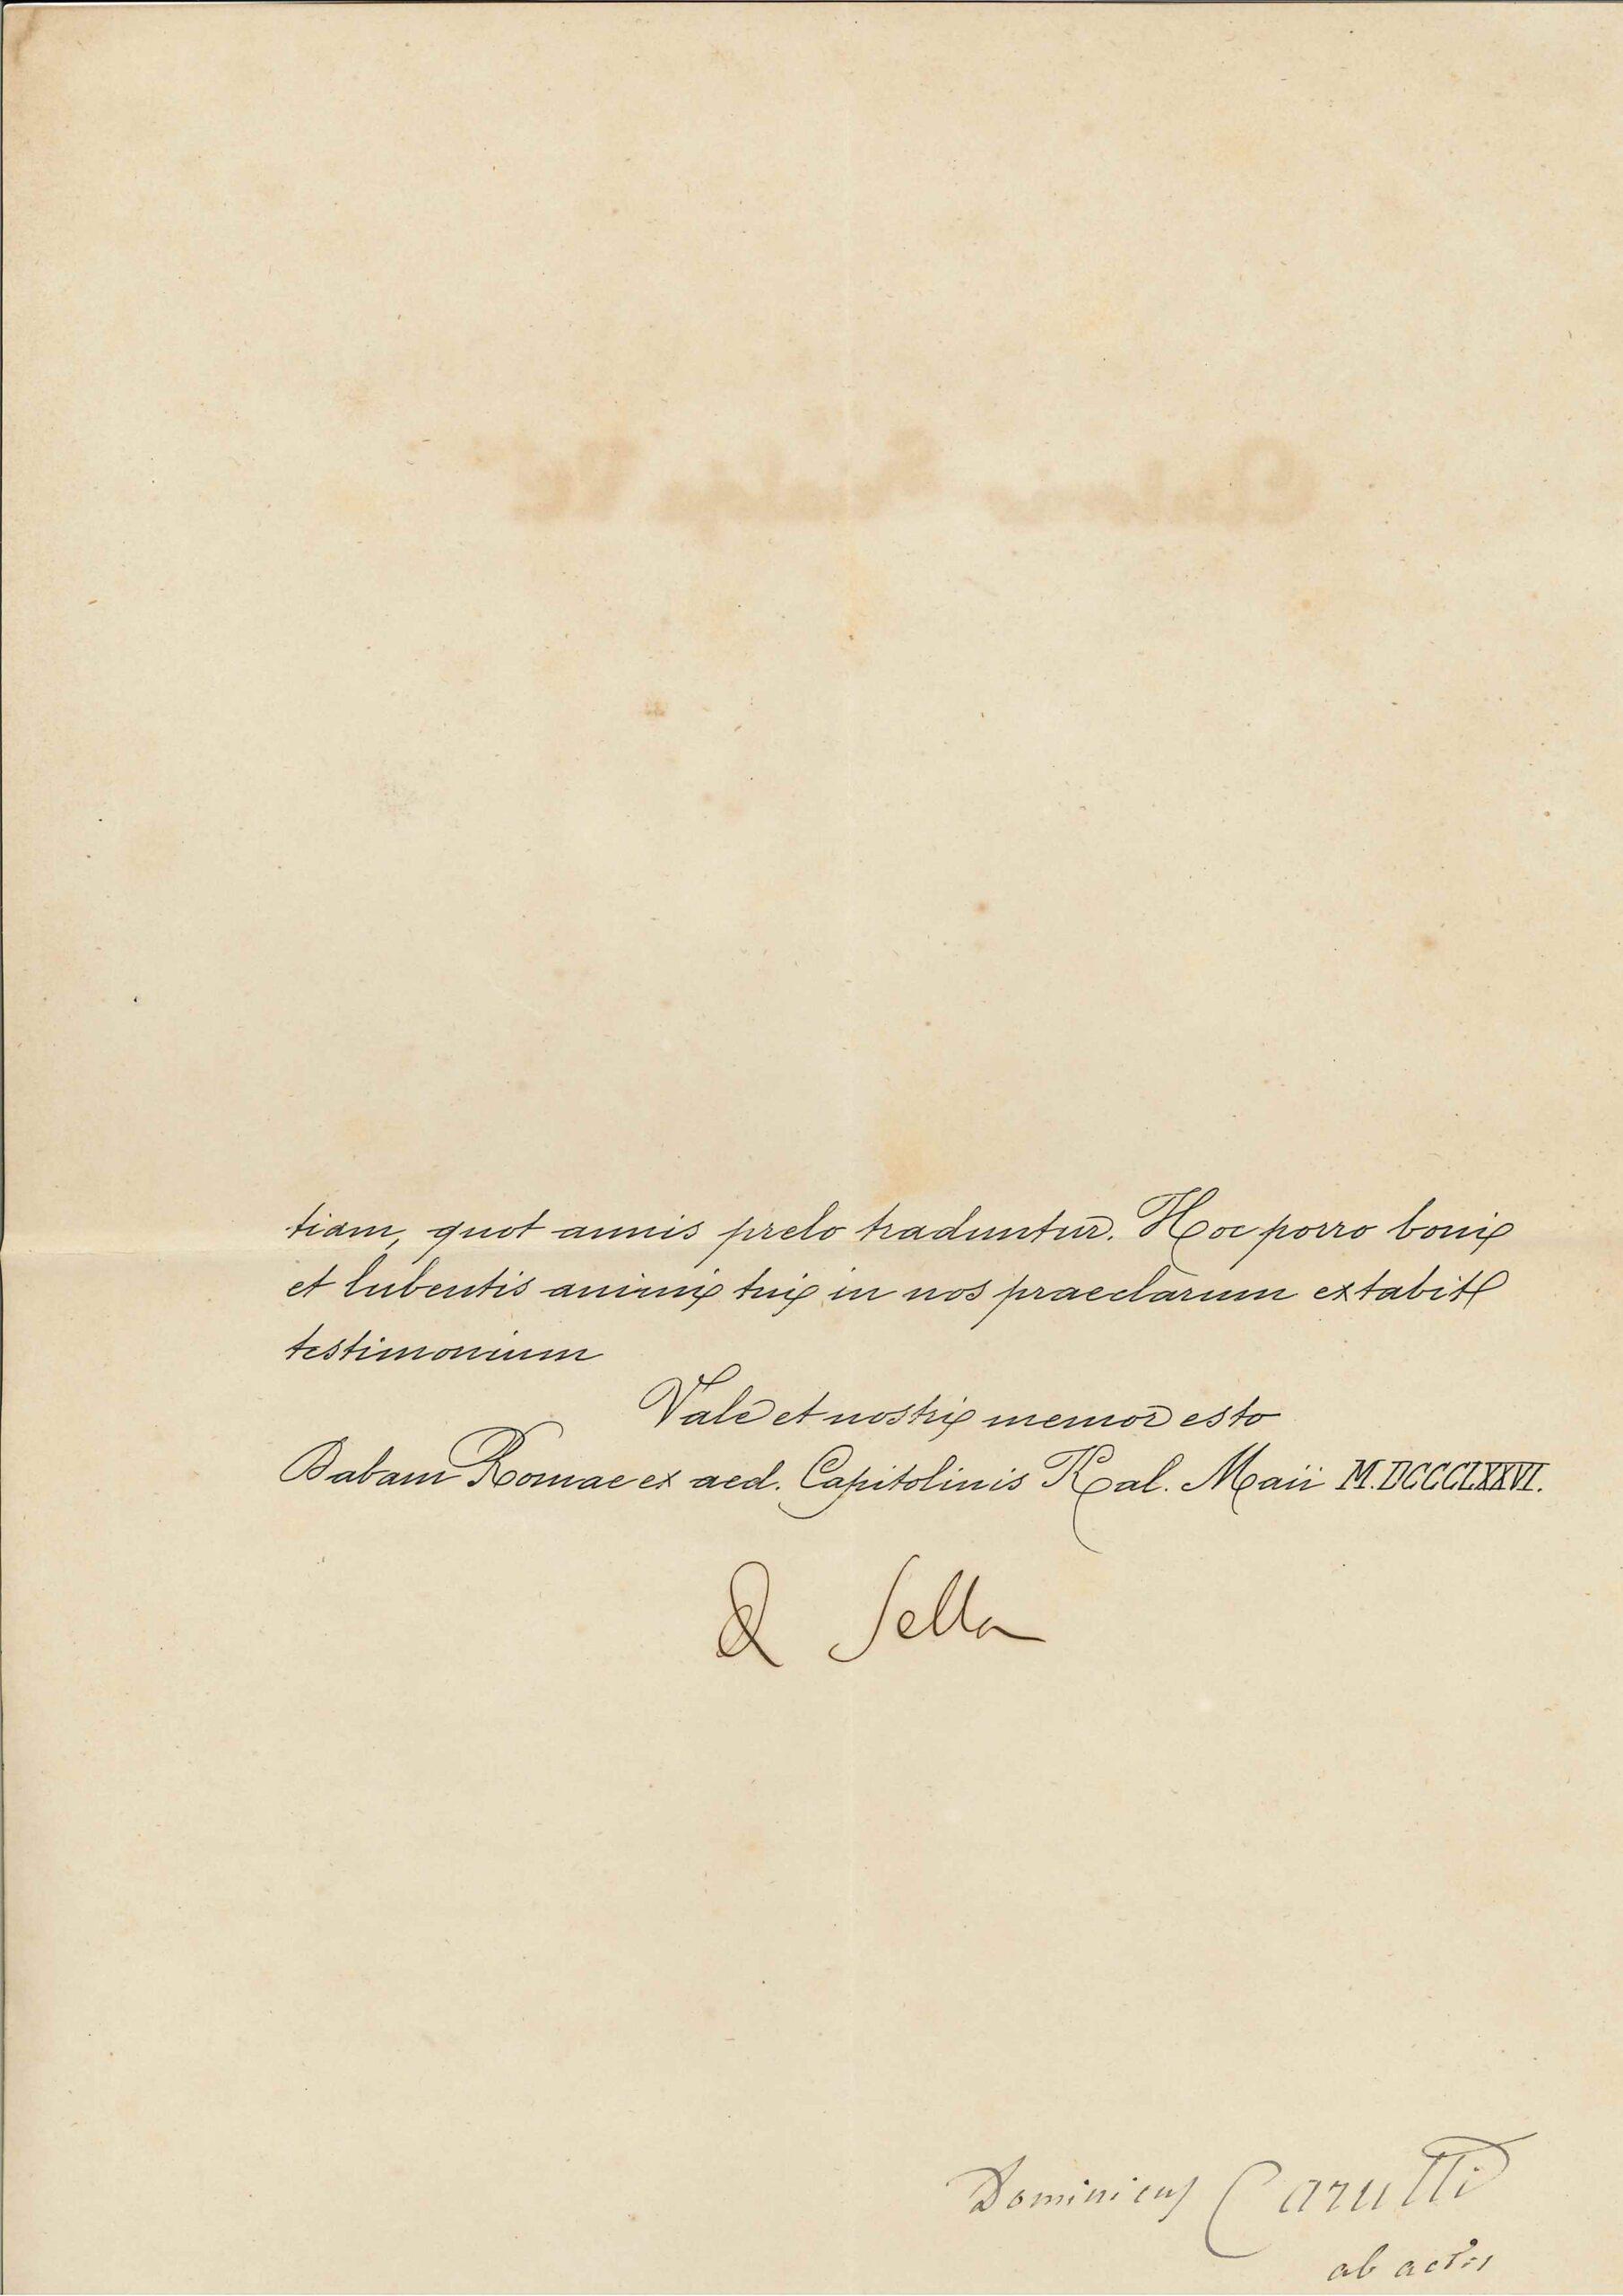 tiam, quot annis prelo traduntur. Hoc porro boni
et lubentis animi tui in nos praeclarum extabit
testimonium
Vale et nostri memor esto
Dabam Romae ex aed. Capitolinis Kal. Maii M.DCCCLXXVI.
Q Sella
Dominicus Carutti
ab actis